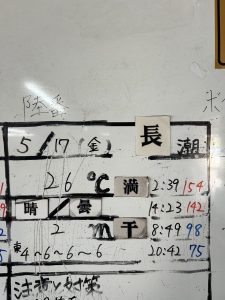 陸番
5/17(金) 長潮
26℃ 満 2:39 154
晴/曇 14:23 142
2m 干 8:49 98
東4~6~6~6 20:42 75